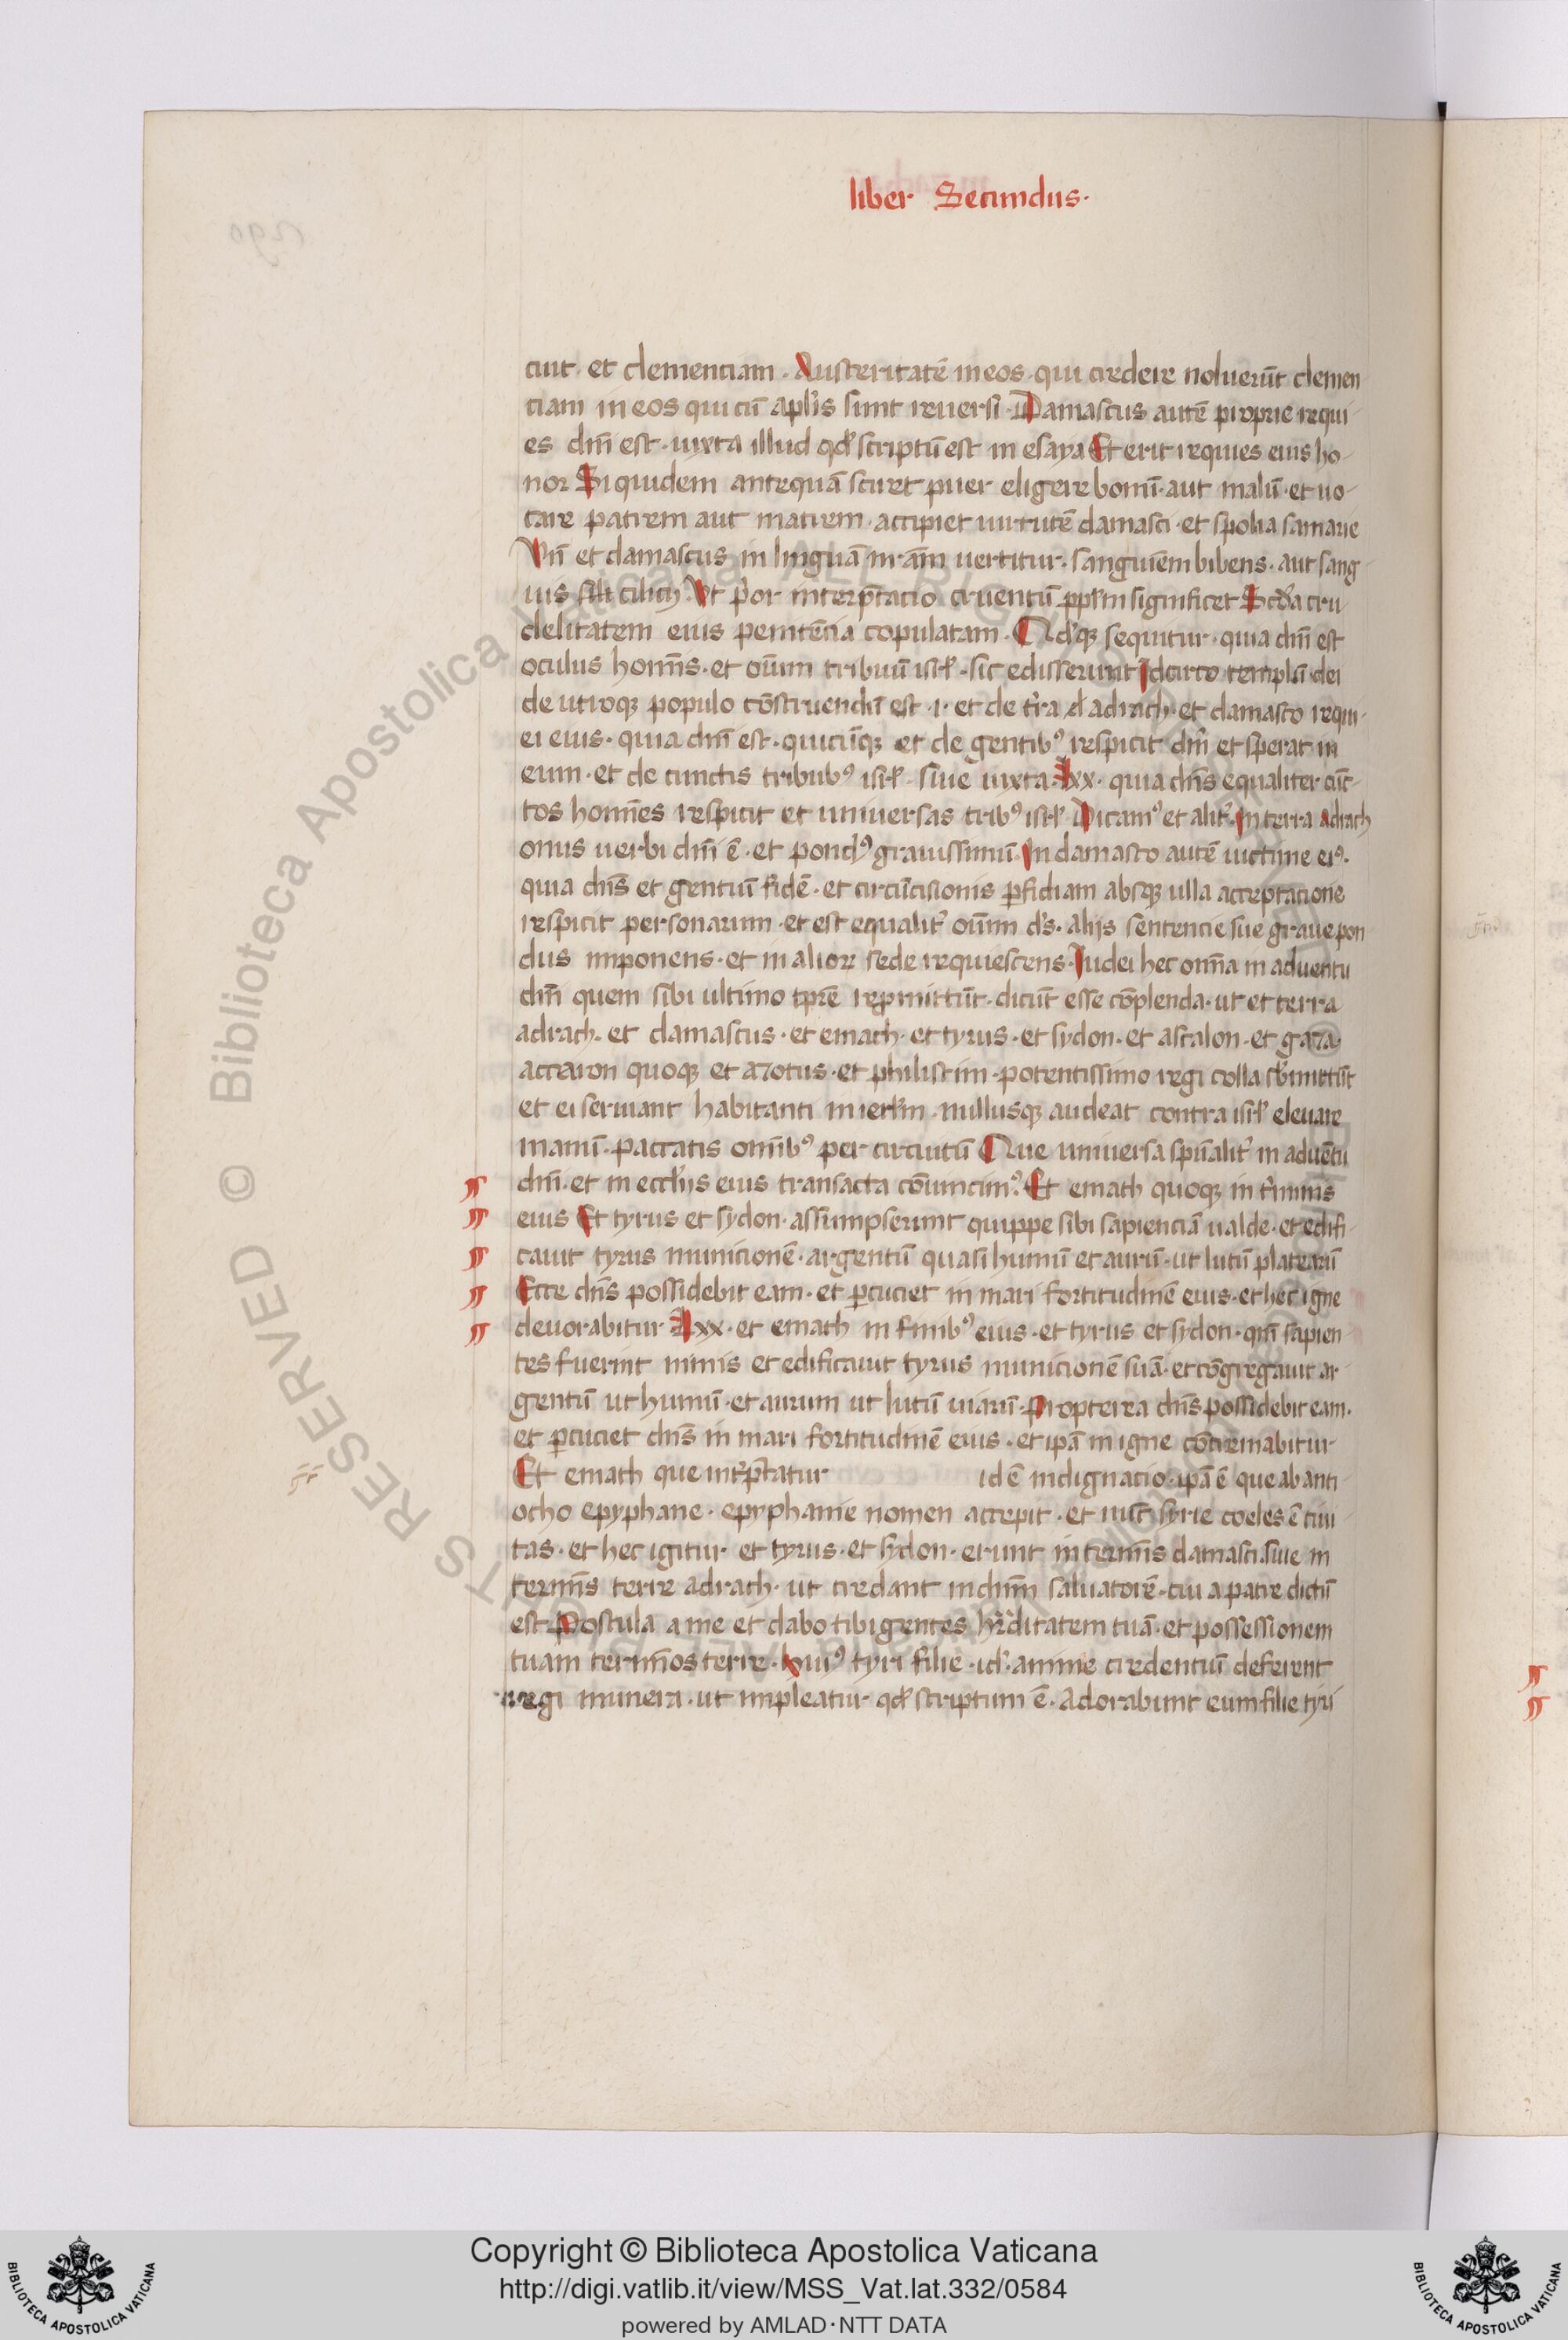 liber Secundus·
cuit· et clemenciam· Austeritatē in eos· qui credere noluerūt clemen
ciam in eos qui cū apl̄is sunt reuersi· Damascus autē proprie requi
es dnī est· iuxta illud qd̛ scriptū est in esaya Et erit requies eius ho
nor Siquidem antequā sciret puer eligere bonū· aut malū· et uo
care patrem aut matrem· accipiet uirtutē damasci· et spolia samarie
Vn̄ et damascus in linguā nr̄am uertitur· sanguiēm bibens· aut sang
uis cilicij· Vt p̛or interp̄tacio cruentū ppl̄m significet Scd̛a cru
delitatem eius penitēcia copulatam· Qd̛qꝫ sequitur· quia dnī est
oculus homīs· et oīum tribuū isrl̄· sic edisserunt Idcirco templū dei
de utroqꝫ populo cōstruendū est ·i· et de t̛ra adrach· et damasco requi
ei eius· quia dnī est· quicūqꝫ et de gentibꝰ respicit dnm̄ et sperat in
eum· et de cunctis tribubꝰ isrl̄· siue iuxta lxx· quia dns̄ equaliter cūc
tos homīes respicit et uniuersas tribꝰ isrl̄ Dicamꝰ et alit̛· In terra adrach
onus uerbi dnī ē· et pondꝰ grauissimū· In damasco autē uictime eiꝰ·
quia dns̄ et gentiū fidē· et circūcisionis ꝑfidiam absqꝫ ulla acceptacione
respicit personarum· et est equalit̛ oīum ds̄· alijs sentencie sue graue pon
dus imponens· et in alior sede requiescens· Iudei hec omīa in aduentu
dnī quem sibi ultimo tpr̄e repmittūt· dicūt esse cōplenda· ut et terra
adrach· et damascus· et emach· et tyrus· et sydon· et ascalon· et gaza·
accaron quoqꝫ et azotus· et philistim· potentissimo regi colla sb̛mittāt
et ei seruiant habitanti in ierl̄m· nullusqꝫ audeat contra isrl̄ eleuare
manū· paccatis omībꝰ per circuitū Que uniuersa spūalit̛ in aduētu
dnī· et in eccl̄ijs eius transacta cōuincimꝰ· Et emath quoqꝫ in t̛minis
eius Et tyrus et sydon· assumpserunt quippe sibi sapienciā ualde· et edifi
cauit tyrus municionē· argentū quasi humū et aurū· ut lutū platearū
Ecce dns̄ possidebit eam· et ꝑcuciet in mari fortitudinē eius· et hec igne
deuorabitur lxx· et emath in finibꝰ eius· et tyrus et sydon· qm̄ sapien
tes fuerint nimis et edificauit tyrus municionē suā· et cōgregauit ar
gentū ut humū· et aurum ut lutū uiarū· Propterea dns̄ possidebit eam·
et ꝑcuciet dns̄ in mari fortitudinē eius· et ipā in igne cōcremabitur
Et emath que int̛p̄tatur id ē indignacio· ipā ē que ab anti
ocho epyphane· epyphanie nomen accepit· et nūc syrie coeles ē ciui
tas· et hec igitur et tyrus· et sydon· erunt in termīs damasci· siue in
termīs terre adrach· ut credant in dnm̄ saluatorē· cui a patre dictū
est Postula a me et dabo tibi gentes hr̄ditatem tuā· et possessionem
tuam termīos terre· Huiꝰ tyri filie· id̛· anime credentiū deferent
regi munera· ut impleatur qd̛ scriptum ē· Adorabunt eum filie tyri
Copyright © Biblioteca Apostolica Vaticana
http://digi.vatlib.it/view/MSS_Vat.lat.332/0584
powered by AMLAD·NTT DATA
BIBLIOTECA APOSTOLICA VATICANA
BIBLIOTECA APOSTOLICA VATICANA